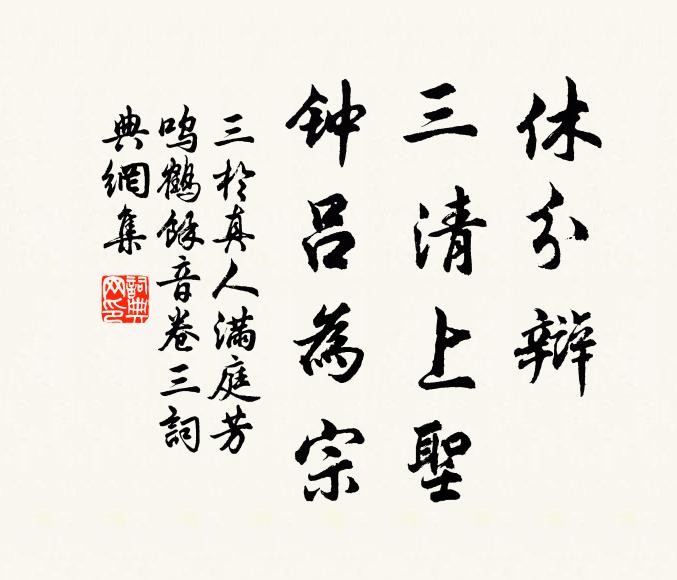 休分辯
三清上聖
钟吕為宗
三於真人滿庭芳
鸣鶴餘音卷三詞
典網集
詞典网印